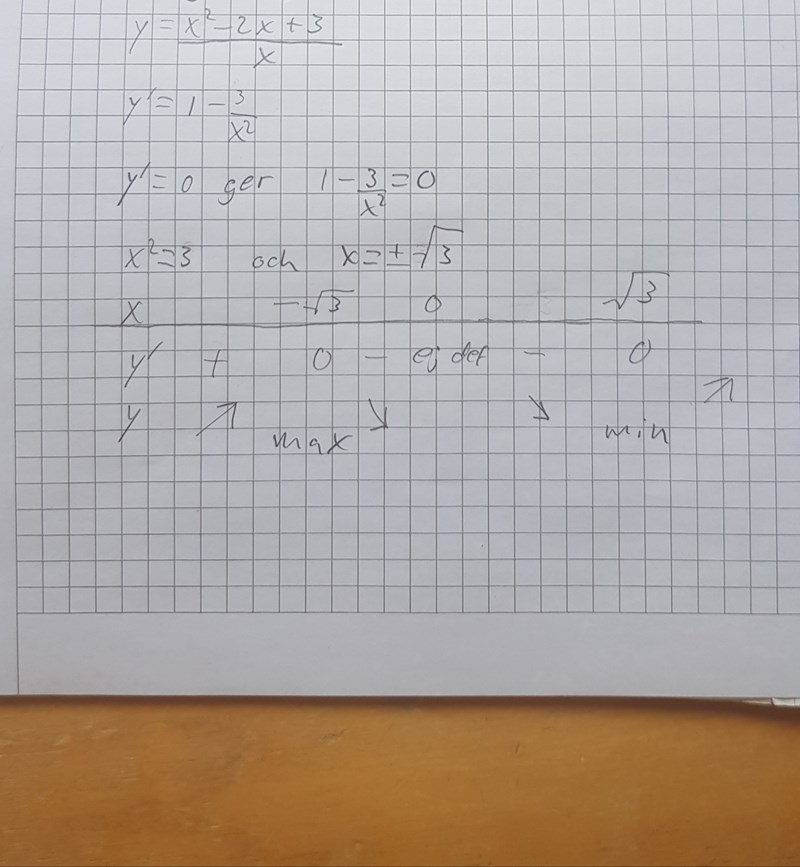 y = x²-2x+3 / x
y' = 1 - 3/x²
y' = 0 ger 1 - 3/x² = 0
x² = 3 och x = ± √3
x -√3 0 √3
y' + 0 - ej def - 0
y ↗ max ↘ ↘ min ↗